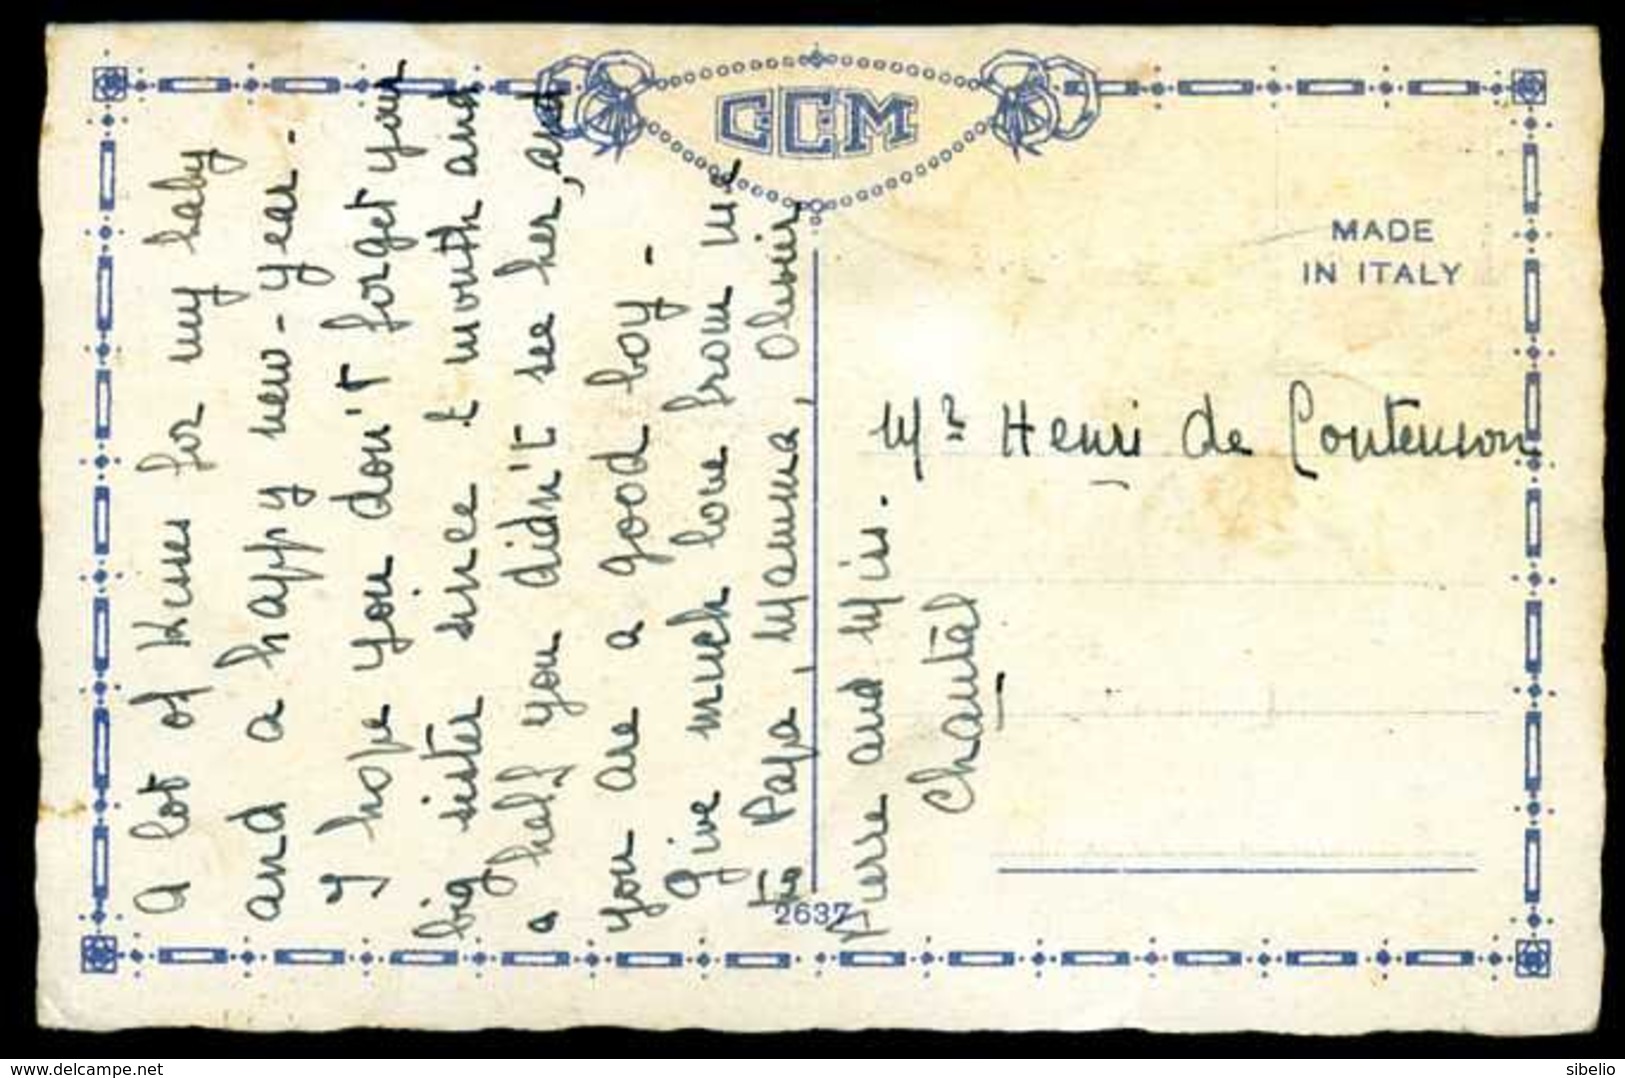 GCM
MADE
IN ITALY
A lot of kisses for my baby
and a happy new-year.
I hope you don't forget your
big sister since 1 month and
a half you didn't see her, and
you are a good boy.
Give much love from me
to Papa, Mamma, Olivier
Pierre and Miss.
Chantal
Mr Henri de Contenson
2637
www.delcampe.net
sibelio